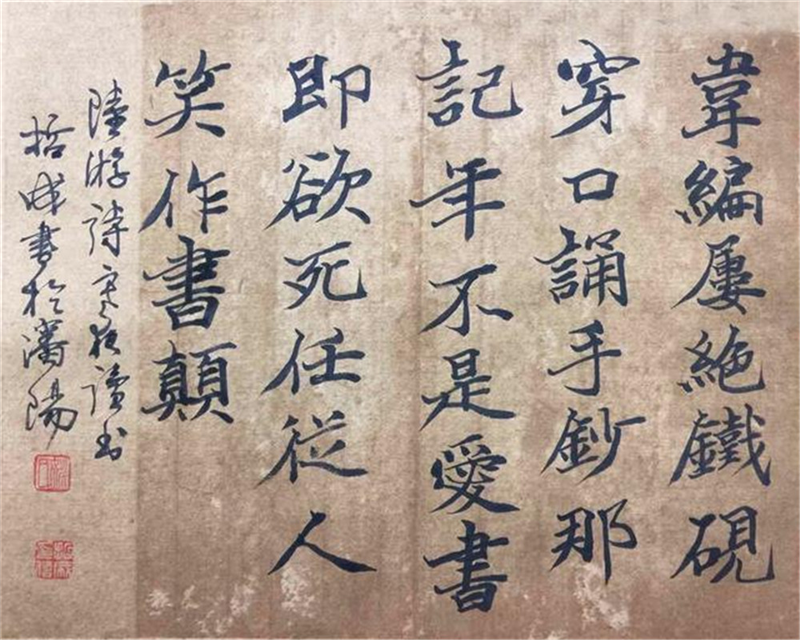 韋編屢絶鐵硯
穿口誦手鈔那
記年不是愛書
即欲死任從人
笑作書顛
陸游詩寒夜讀书
哲成書於瀋陽